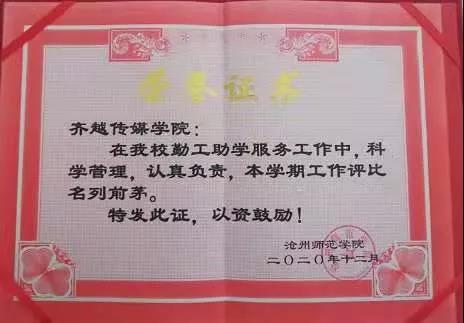 荣誉证书
齐越传媒学院：
在我校勤工助学服务工作中，科
学管理，认真负责，本学期工作评比
名列前茅。
特发此证，以资鼓励！
沧州师范学院
二〇二〇年十二月